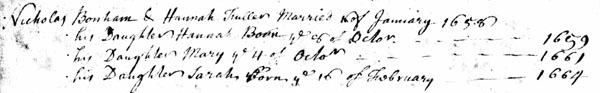 Nicholas Bonham & Hannah Fuller Married of January 1658
his Daughter Hannah Born ye 8 of Octor 1659
his Daughter Mary ye 4 of Octor 1661
his Daughter Sarah Born ye 16 of February 1664